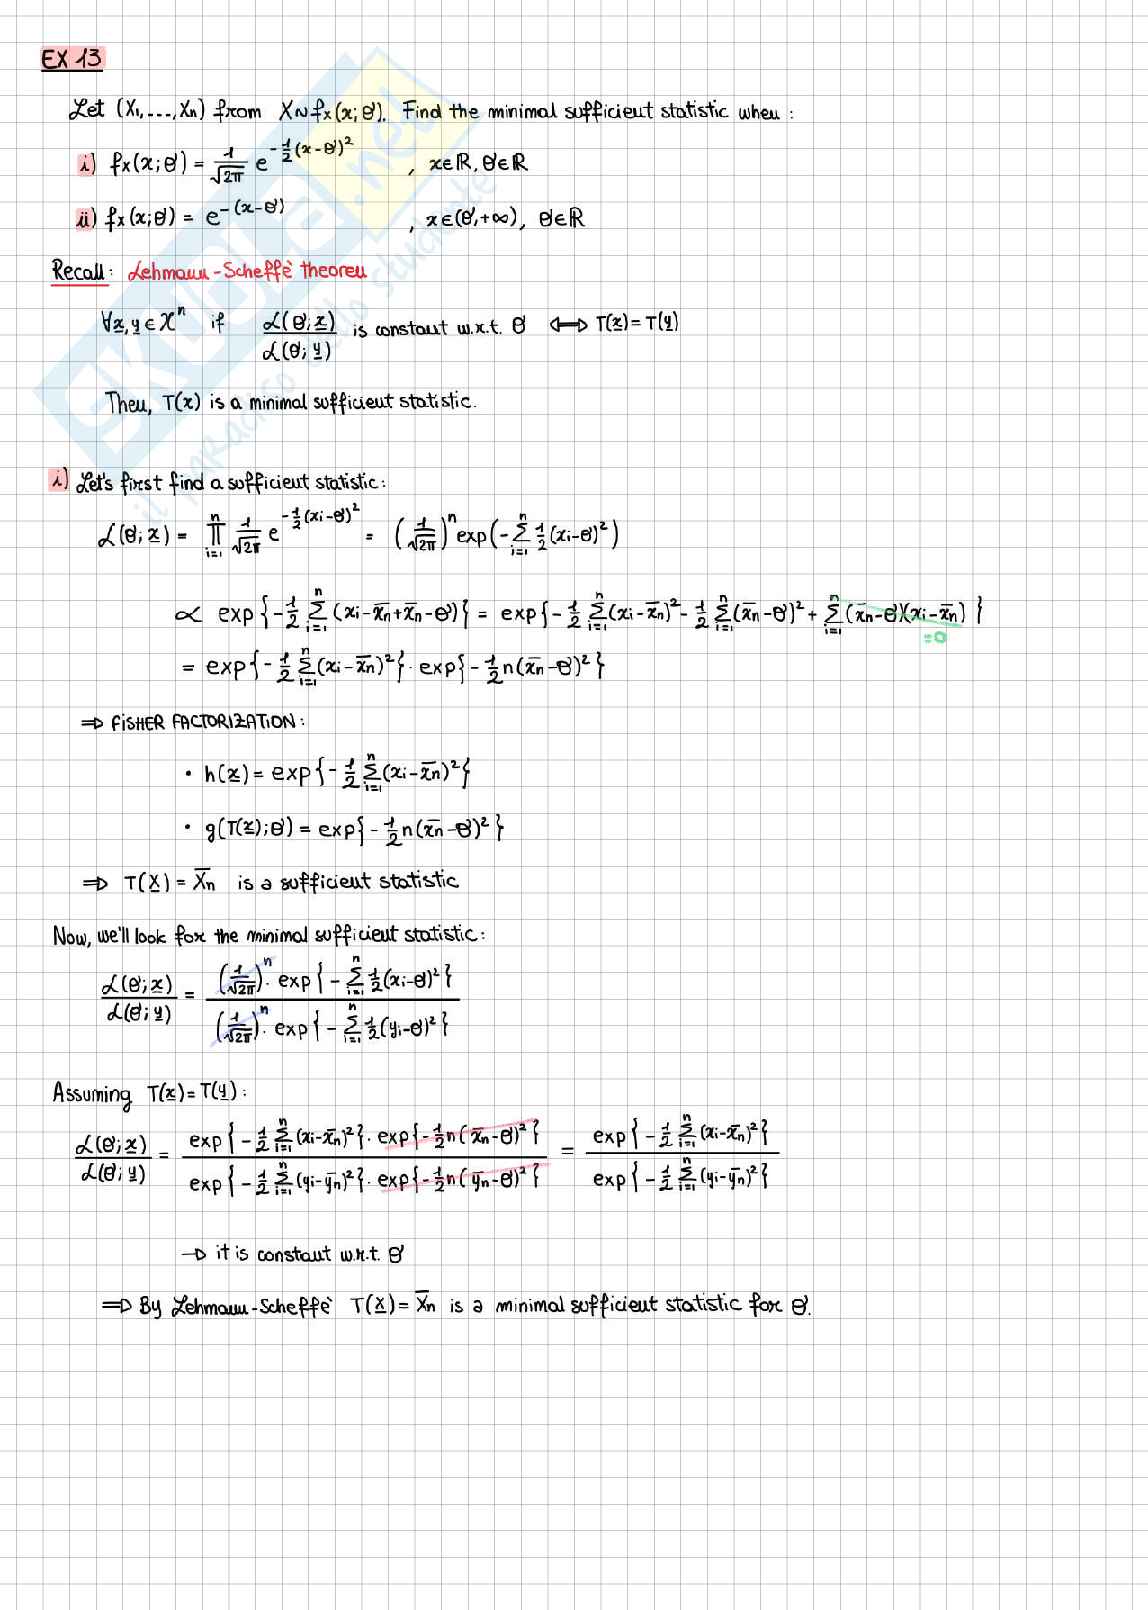 EX 13
Let (X1,...,Xn) from X~fx(x;θ). Find the minimal sufficient statistic when:
i) fx(x;θ) = 1/√2π e^{-1/2(x-θ)²} , x∈ℝ, θ∈ℝ
ii) fx(x;θ) = e^{-(x-θ)} , x∈(θ,+∞), θ∈ℝ
Recall: Lehmann-Scheffè theorem
∀x,y∈Xⁿ if L(θ;x)/L(θ;y) is constant w.r.t. θ ⟺ T(x)=T(y)
Then, T(x) is a minimal sufficient statistic.
i) Let's first find a sufficient statistic:
L(θ;x) = ∏_{i=1}^{n} 1/√2π e^{-1/2(xi-θ)²} = (1/√2π)ⁿ exp(-∑_{i=1}^{n} 1/2(xi-θ)²)
∝ exp{-1/2 ∑_{i=1}^{n} (xi-x̄n+x̄n-θ)} = exp{-1/2 ∑_{i=1}^{n} (xi-x̄n)² - 1/2 ∑_{i=1}^{n} (x̄n-θ)² + ∑_{i=1}^{n} (x̄n-θ)(xi-x̄n)}
=0
= exp{-1/2 ∑_{i=1}^{n} (xi-x̄n)²}· exp{-1/2 n(x̄n-θ)²}
⇒ FISHER FACTORIZATION:
• h(x) = exp{-1/2 ∑_{i=1}^{n} (xi-x̄n)²}
• g(T(x);θ) = exp{-1/2 n(x̄n-θ)²}
⇒ T(X) = X̄n is a sufficient statistic
Now, we'll look for the minimal sufficient statistic:
L(θ;x)/L(θ;y) = (1/√2π)ⁿ· exp{-∑_{i=1}^{n} 1/2(xi-θ)²} / (1/√2π)ⁿ· exp{-∑_{i=1}^{n} 1/2(yi-θ)²}
Assuming T(x)=T(y):
L(θ;x)/L(θ;y) = exp{-1/2 ∑_{i=1}^{n} (xi-x̄n)²}· exp{-1/2 n(x̄n-θ)²} / exp{-1/2 ∑_{i=1}^{n} (yi-ȳn)²}· exp{-1/2 n(ȳn-θ)²} = exp{-1/2 ∑_{i=1}^{n} (xi-x̄n)²} / exp{-1/2 ∑_{i=1}^{n} (yi-ȳn)²}
→ it is constant w.r.t. θ
⇒ By Lehmann-Scheffè T(X)=X̄n is a minimal sufficient statistic for θ.
SKUOLA.net
il paradiso dello studente